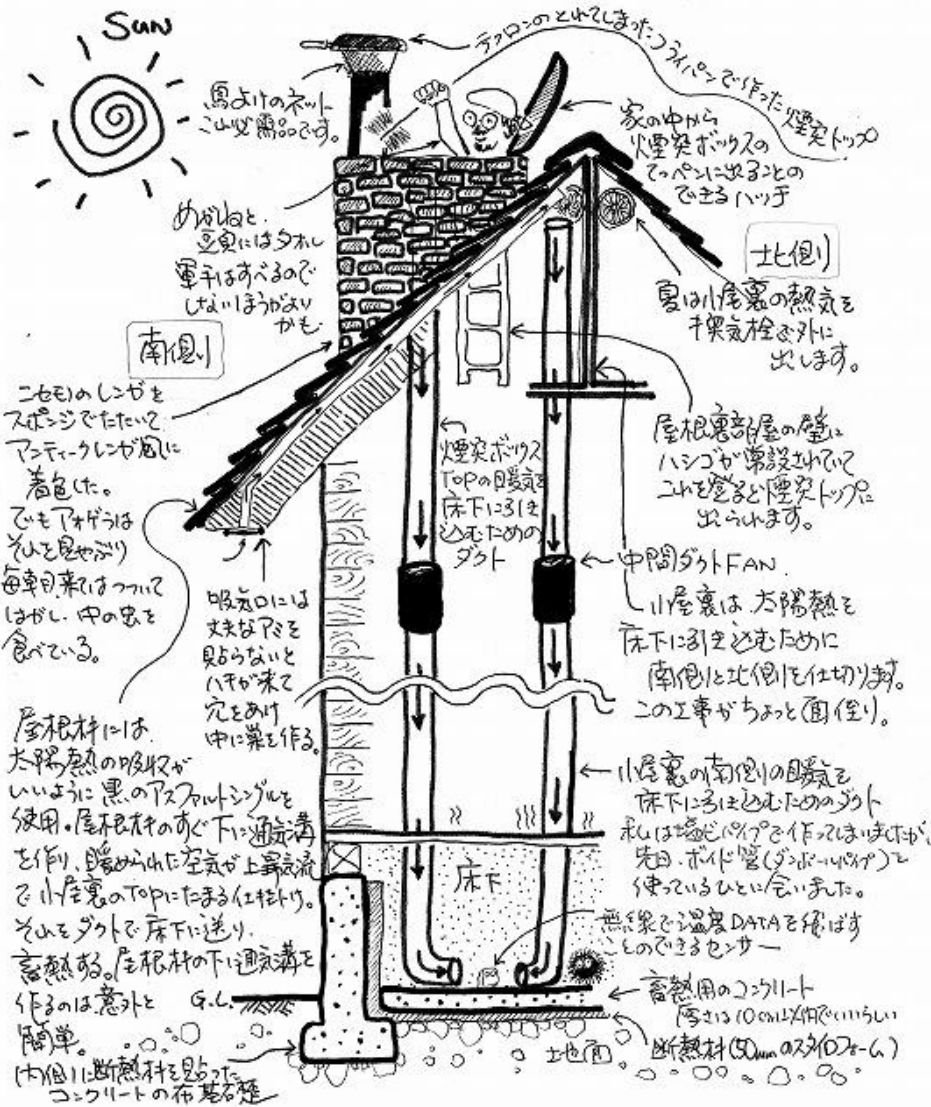 Sun
テフロンのとれてしまったフライパンで作った煙突トップ
鳥よけのネット
こいつ必需品です。
家の中から
煙突ボックスの
てっぺんに出ることの
できるハッチ
めがねと
頭にはタオル
軍手はすべるので
しないほうがよい
かも
北側
夏は小屋裏の熱気を
換気栓で外に
出します。
南側
ニセモノのレンガを
スポンジでたたいて
アンティークレンガ風に
着色した。
でもアオゲラは
それを見やぶり
毎朝来てはつついて
はがし、中の虫を
食べている。
煙突ボックス
TOPの暖気を
床下に引き
込むための
ダクト
屋根裏部屋の壁に
ハシゴが常設されていて
これを登ると煙突トップに
出られます。
中間ダクトFAN
小屋裏は、太陽熱を
床下に引き込むために
南側と北側を仕切ります。
この工事がちょっと面倒。
吸気口には
丈夫なアミを
貼らないと
ハチが来て
穴をあけ
中に巣を作る。
屋根材には
太陽熱の吸収が
いいように黒のアスファルトシングルを
使用。屋根材のすぐ下に通気溝
を作り、暖められた空気が上昇気流
で小屋裏のTOPにたまる仕掛け。
それをダクトで床下に送り、
蓄熱する。屋根材の下に通気溝を
作るのは意外と
簡単。
小屋裏の南側の暖気を
床下に引き込むためのダクト
私は塩ビパイプで作ってしまいましたが、
先日、ボイド管(ダンボールパイプ)を
使っているひとに会いました。
床下
無線で温度DATAを飛ばす
ことのできるセンサー
G.L.
蓄熱用のコンクリート
厚さは10cm以内でいいらしい
断熱材(50mmのスタイロフォーム)
地面
内側に断熱材を貼った
コンクリートの布基礎